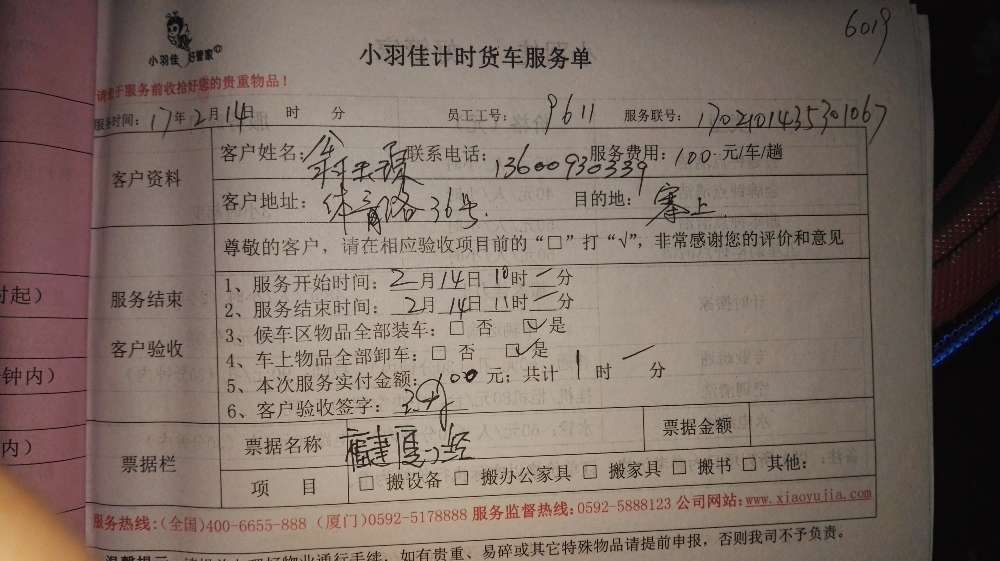 6019
小羽佳 好管家
小羽佳计时货车服务单
请您于服务前收拾好您的贵重物品！
服务时间：17年2月14日 时 分 员工工号：9611 服务联号：1702101435301067
客户资料
客户姓名： 联系电话：13600930339 服务费用：100元/车/趟
客户地址：体育路36号. 目的地：寨上
尊敬的客户，请在相应验收项目前的“□”打“√”，非常感谢您的评价和意见
服务结束
客户验收
1、服务开始时间：2月14日10时一分
2、服务结束时间：2月14日11时一分
3、候车区物品全部装车：□ 否 ☑是
4、车上物品全部卸车：□ 否 ☑是
5、本次服务实付金额：100元；共计 1 时 一 分
6、客户验收签字：
票据栏
票据名称 福建 票据金额
项 目 □ 搬设备 □ 搬办公家具 □ 搬家具 □ 搬书 □ 其他：
服务热线：(全国)400-6655-888 (厦门)0592-5178888 服务监督热线：0592-5888123 公司网站：www.xiaoyujia.com
物业通行手续，如有贵重、易碎或其它特殊物品请提前申报，否则我司不予负责。
时起）
钟内）
内）